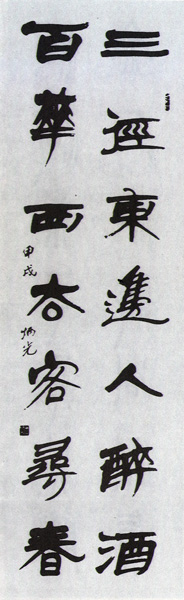 三徑東邊人醉酒
百華西谷客尋春
甲戌 炳光